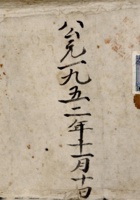 公元一九五二年十一月十日